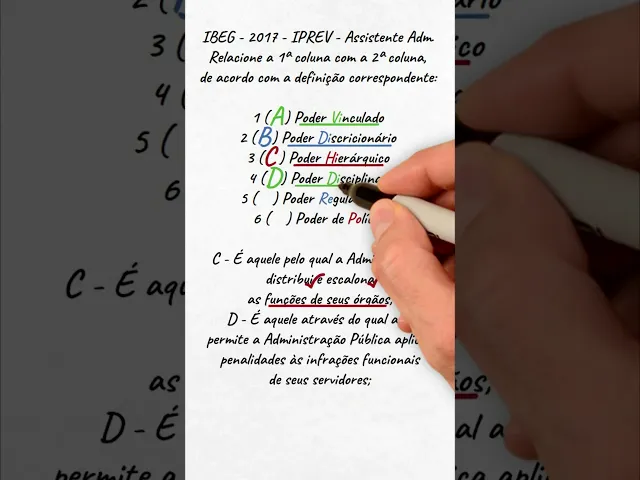 IBEG - 2017 - IPREV - Assistente Adm
Relacione a 1ª coluna com a 2ª coluna,
de acordo com a definição correspondente:
1 (A) Poder Vinculado
2 (B) Poder Discricionário
3 (C) Poder Hierárquico
4 (D) Poder Disciplin
5 ( ) Poder Regul
6 ( ) Poder de Polí
C - É aquele pelo qual a Admi
distribui e escalona
as funções de seus órgãos;
D - É aquele através do qual a
permite a Administração Pública aplic
penalidades às infrações funcionais
de seus servidores;